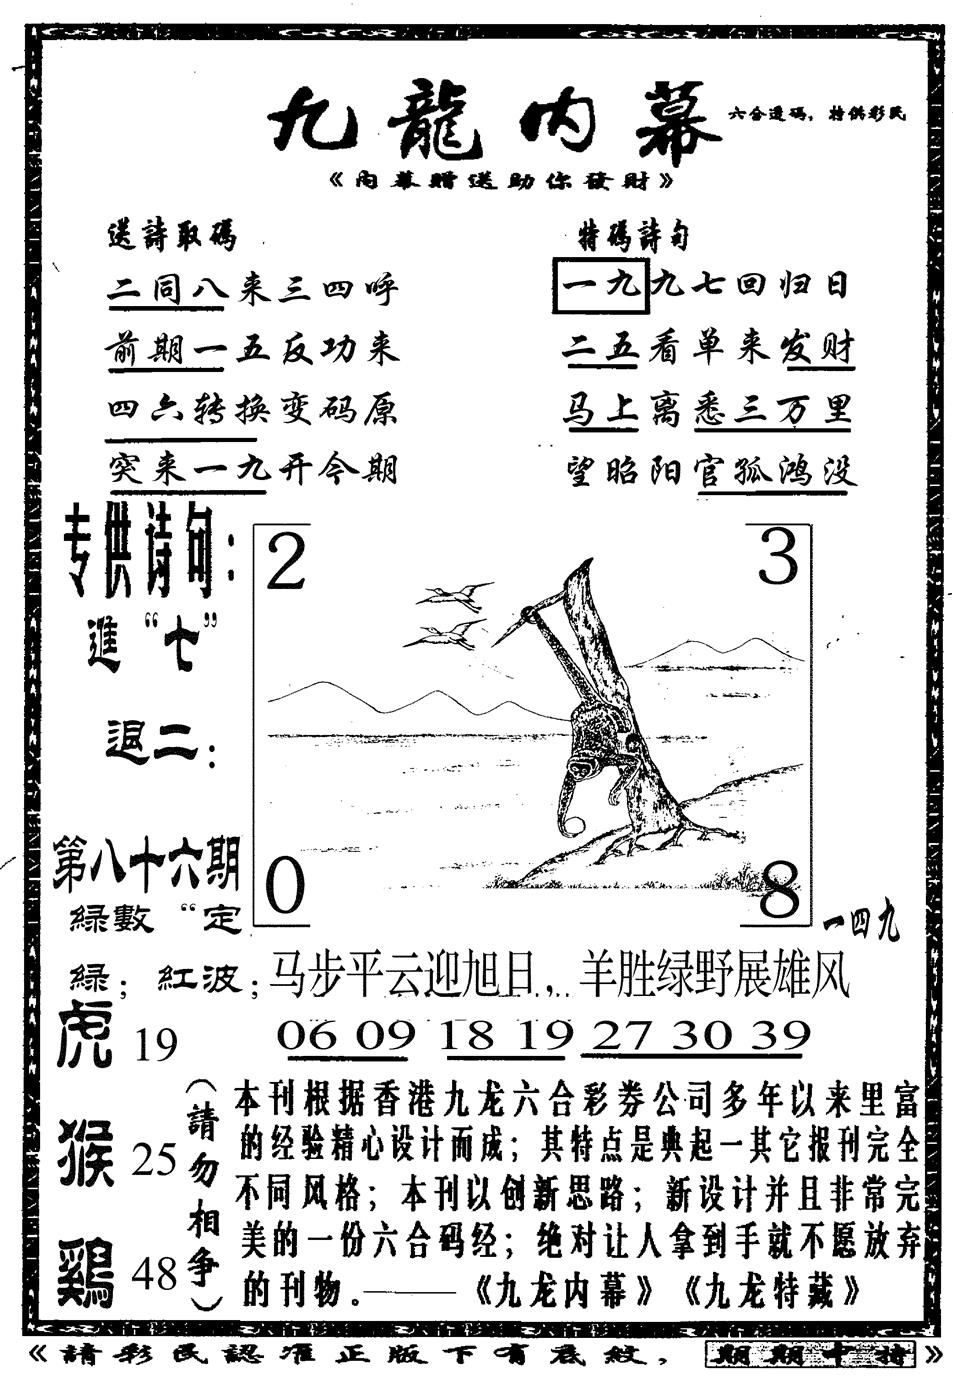 九龍内幕
六合透码，特供彩民
《内幕贈送助你發財》
送詩取碼
二同八来三四呼
前期一五反功来
四六转换变码原
突来一九开今期
特碼詩句
一九九七回归日
二五看单来发财
马上离悉三万里
望昭阳官孤鸿没
专供诗句：
進“七”
退二：
第八十六期
綠數“定
綠；紅波；
2
3
0
8
一四九
马步平云迎旭日，羊胜绿野展雄风
06 09 18 19 27 30 39
虎 19
猴 25
鷄 48
（請勿相争）
本刊根据香港九龙六合彩券公司多年以来里富
的经验精心设计而成；其特点是典起一其它报刊完全
不同风格；本刊以创新思路；新设计并且非常完
美的一份六合码经；绝对让人拿到手就不愿放弃
的刊物。——《九龙内幕》《九龙特藏》
《請彩民認准正版下有底紋，期期中特》